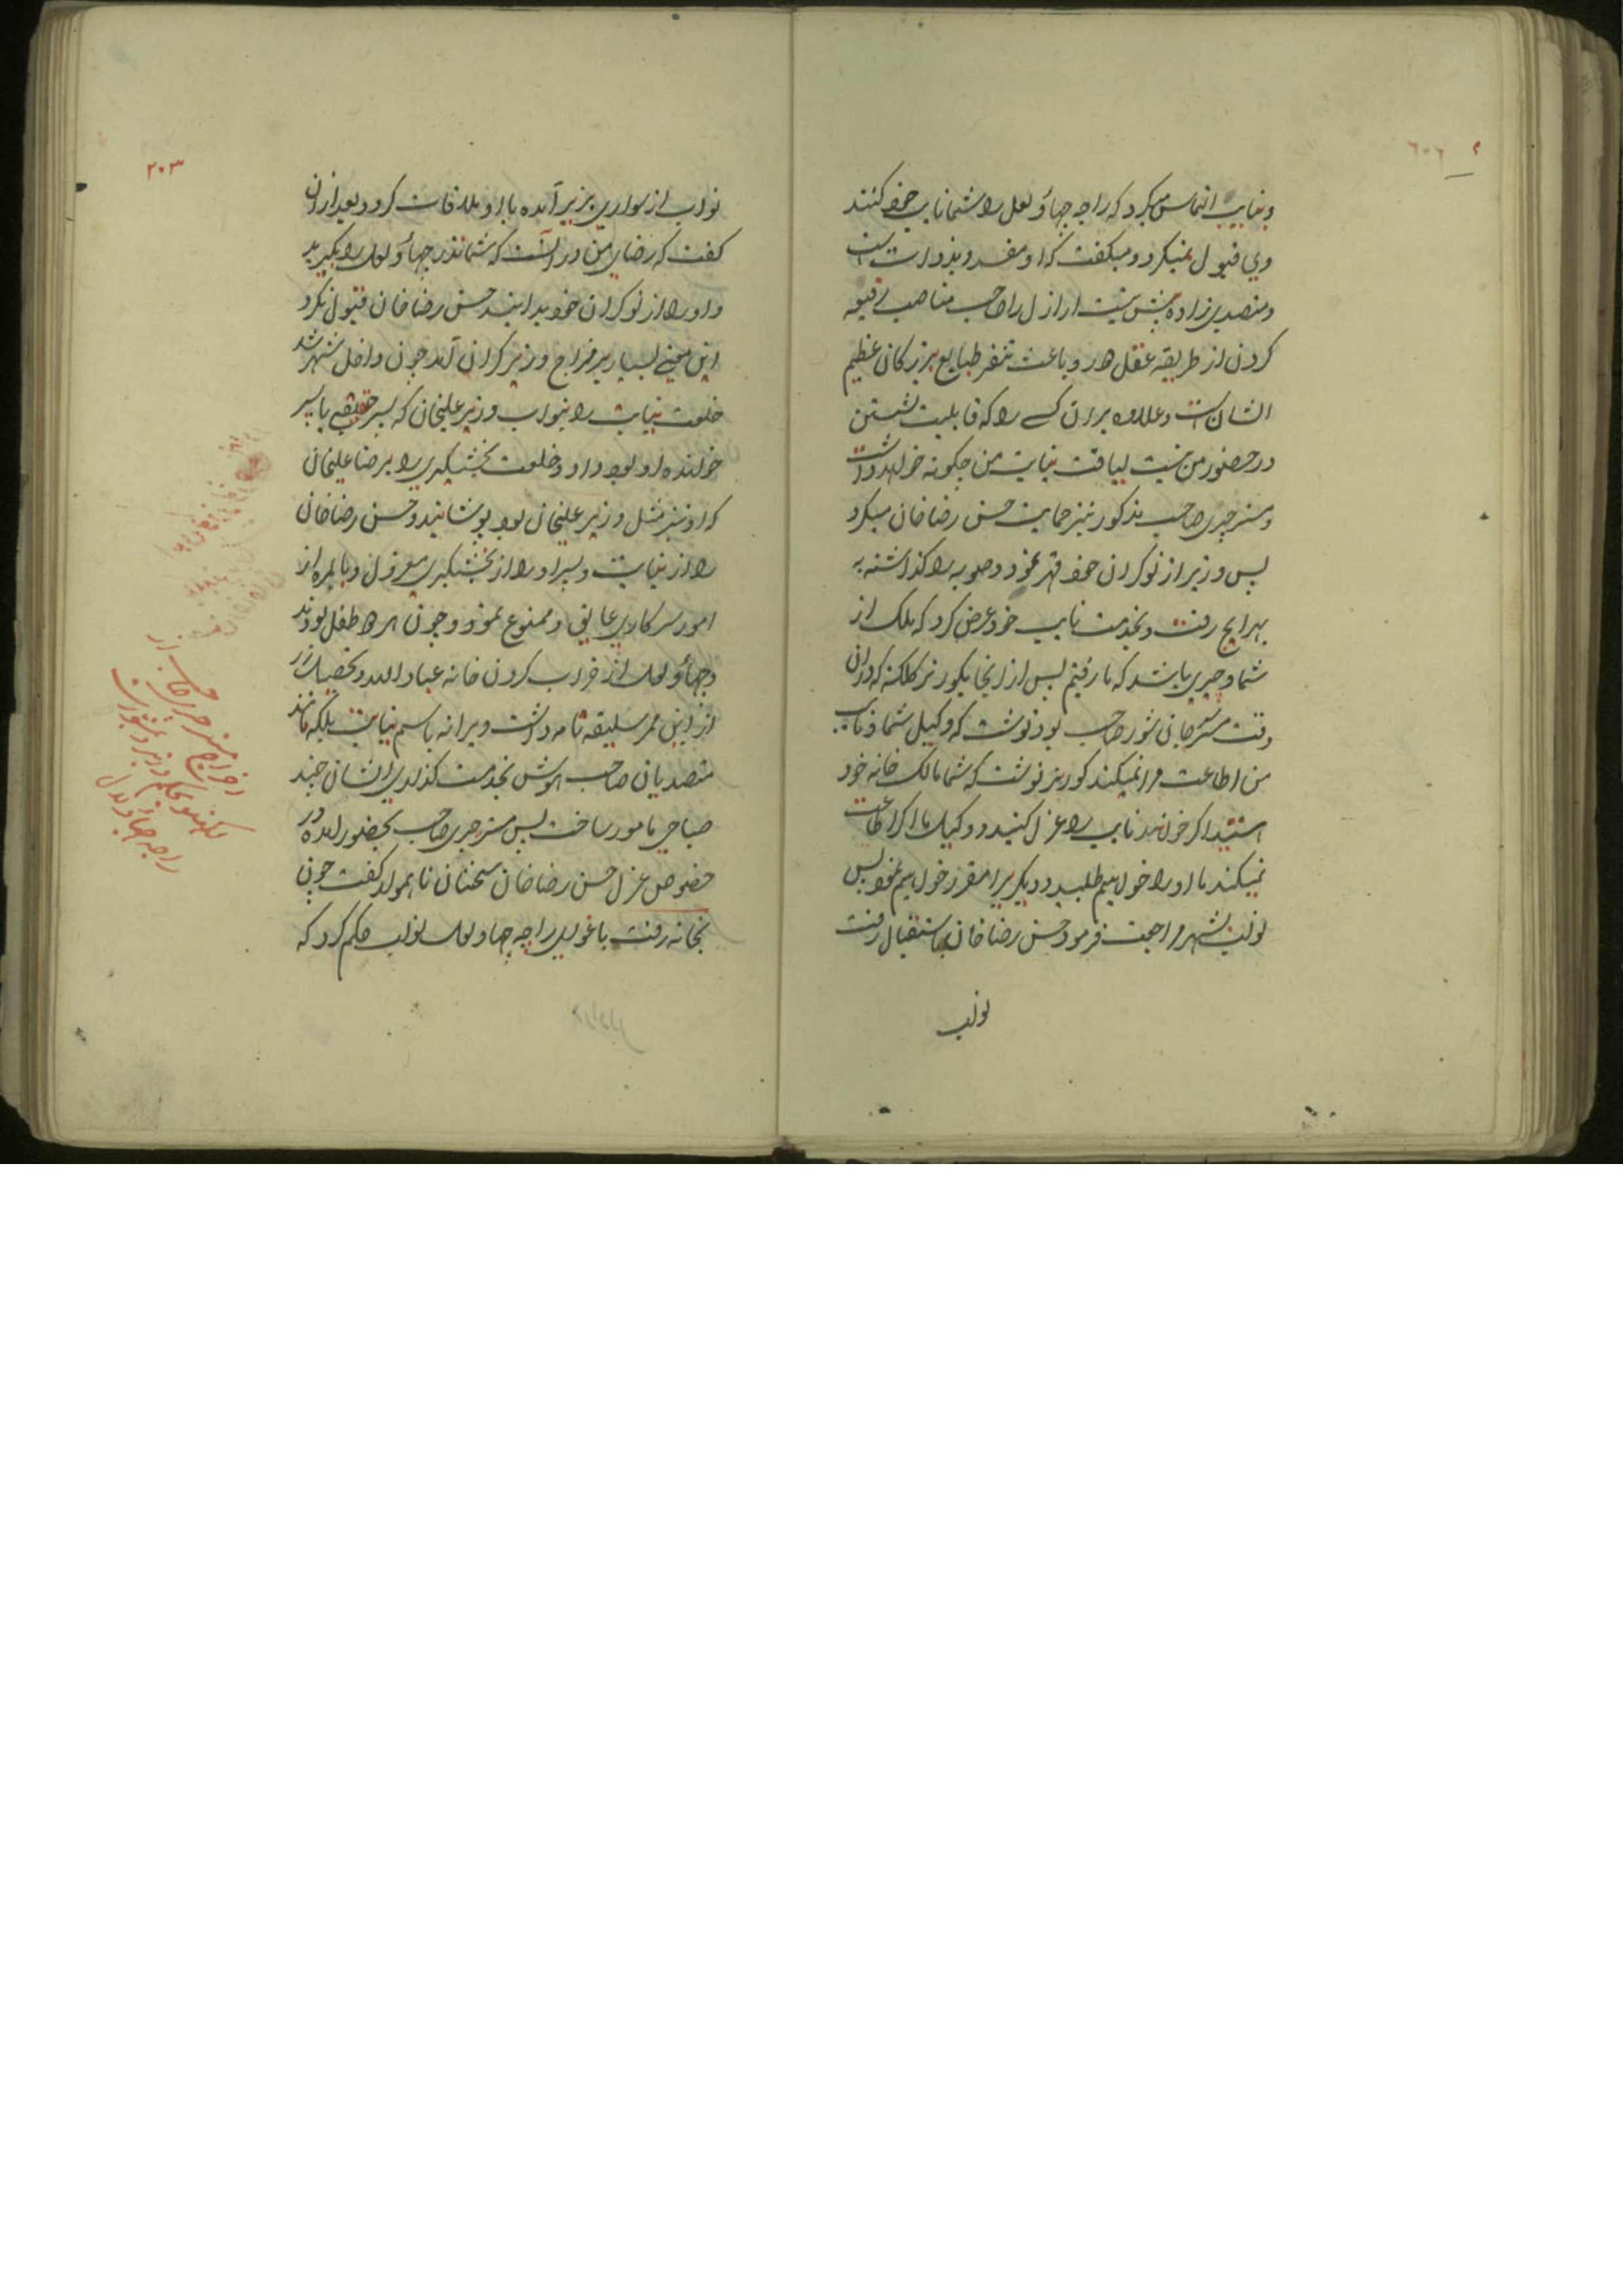 و بنایب التماس میکرد که راجه جهاؤ لعل را شما نایب خود کنند
وی قبول نمیکرد و میگفت که او مفسد و بدذات است
و متصدی زاده بیش نیست اراذل را صاحب مناصب رفیعه
کردن از طریقه عقل دور و باعث تنفر طبایع بزرگان عظیم
الشان است و علاوه بران کسے را که قابلیت نشستن
در حضور من نیست لیاقت نیابت من چگونه خواهد داشت
و مستر چری صاحب مذکور نیز حمایت حسن رضا خان میکرد
پس وزیر از نوکران خود قهر نمود و صوبه را گذاشته به
بهرایچ رفت و بخدمت نایب خود عرض کرد که ملک از
شما و چری باشد که ما رفتیم پس از انجا بگورنر کلکته که دران
وقت مستر جان شور صاحب بود نوشت که وکیل شما و نایب
من اطاعت مرا نمیکند گورنر نوشت که شما مالک خانه خود
استید اگر خواهید نایب را عزل کنید و وکیل ما اگر اطاعت
نمیکند ما او را خواهیم طلبید و دیگریرا مقرر خواهیم نمود پس
نواب بشهر مراجعت فرمود حسن رضا خان باستقبال رفت
نواب
۲۰۳
نواب از سواری بزیر آمده با او ملاقات کرد و بعد ازان
گفت که رضای من در آنست که شما نذر جهاؤ لعل را بگیرید
و او را از نوکران خود بدانید حسن رضا خان قبول نکرد
این معنے بسیار بر مزاج وزیر گران آمد چون داخل شهر شد
خلعت نیابت را بنواب وزیر علیخان که پسر حقیقی یا پسر
خوانده او بود داد و خلعت بخشیگیری را برضا علیخان
که او نیز مثل وزیر علیخان بود پوشانید و حسن رضا خان
را از نیابت و پسر او را از بخشیگیری معزول و بالمره از
امور سرکاری عایق و ممنوع نمود و چون هر دو طفل بودند
و جهاؤ لعل از خراب کردن خانه عباد الله و تحصیل زر
از این ممر سلیقه تامه داشت ویرا نه باسم نیابت بلکه مانند
متصدیان صاحب هوش بخدمت گذاری ایشان چند
صباحی مامور ساخت پس مستر چری صاحب بحضور آمده در
خصوص عزل حسن رضا خان سخنان ناهموار گفت چون
بخانه رفت باغوای راجه جهاو لعل نواب حکم کرد که
اخراج مستر چری صاحب از
لکهنو بحکم وزیر و مشورت
راجه جهاؤ لال